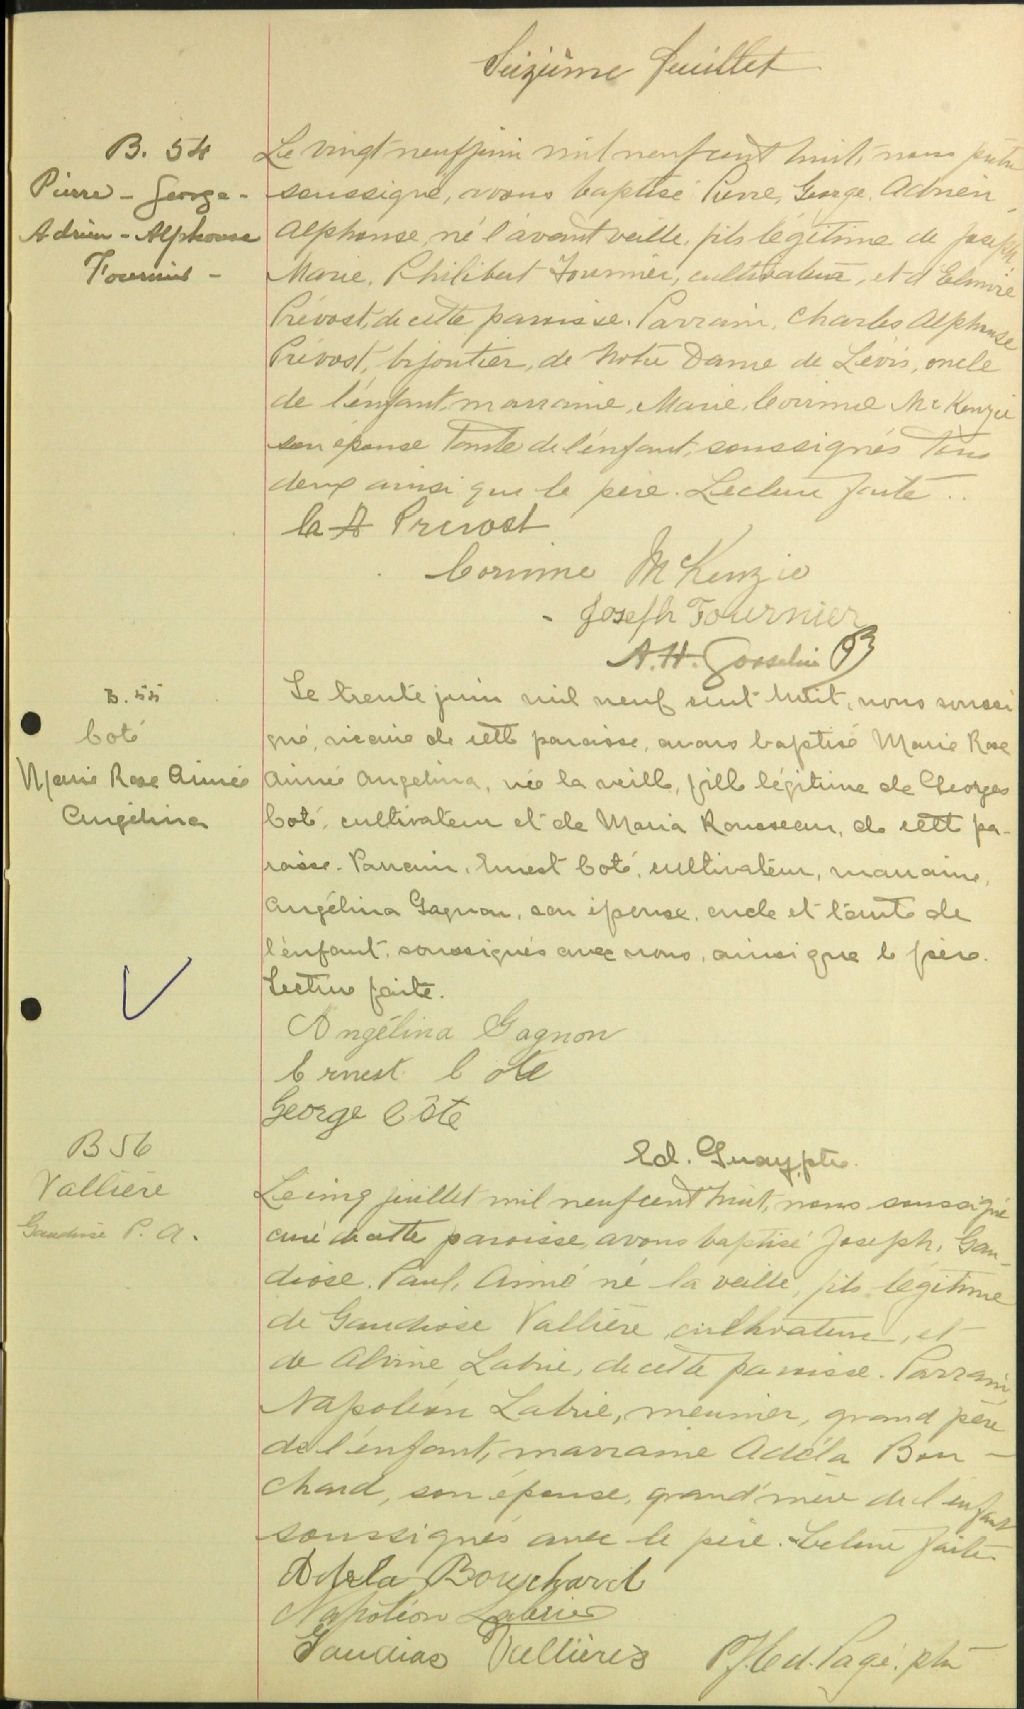 Seizième feuillet
B. 54
Pierre - George -
Adrien - Alphonse
Fournier -
Le vingt neuf juin mil neuf cent huit, nous prêtre
soussigné, avons baptisé Pierre, George, Adrien,
Alphonse, né l'avant veille, fils légitime de Joseph
Marie, Philibert Fournier, cultivateur, et d'Elmire
Prévost, de cette paroisse. Parrain, Charles Alphonse
Prévost, bijoutier, de Notre Dame de Lévis, oncle
de l'enfant, marraine, Marie, Corinne McKenzie
son épouse tante de l'enfant, soussignés tous
deux ainsi que le père. Lecture faite..
Ch A Prevost
Corinne McKenzie
Joseph Fournier
A. H. Gosselin
B. 55
Coté
Marie Rose Aimée
Angélina
Le trente juin mil neuf cent huit, nous soussi
gné, vicaire de cette paroisse, avons baptisé Marie Rose
Aimée Angelina, née la veille, fille légitime de Georges
Coté, cultivateur et de Maria Rousseau, de cette pa-
roisse. Parrain, Ernest Coté, cultivateur, marraine,
Angélina Gagnon, son épouse, oncle et tante de
l'enfant, soussignés avec nous, ainsi que le père.
Lecture faite.
Angélina Gagnon
Ernest Cote
George Côte
Ed. Guay, ptre.
B 56
Vallière
Gaudiose P. A.
Le cinq juillet mil neuf cent huit, nous soussigné
curé de cette paroisse, avons baptisé Joseph, Gau-
diose, Paul, Aimé né la veille, fils légitime
de Gaudiose Vallière, cultivateur, et
de Alvine Labrie, de cette paroisse. Parrain
Napoléon Labrie, meunier, grand père
de l'enfant, marraine Adéla Bou-
chard, son épouse, grand'mère de l'enfant
soussignés avec le père. Lecture faite
Adela Bouchard
Napoléon Labrie
Gaudias Vallières
Page, ptre